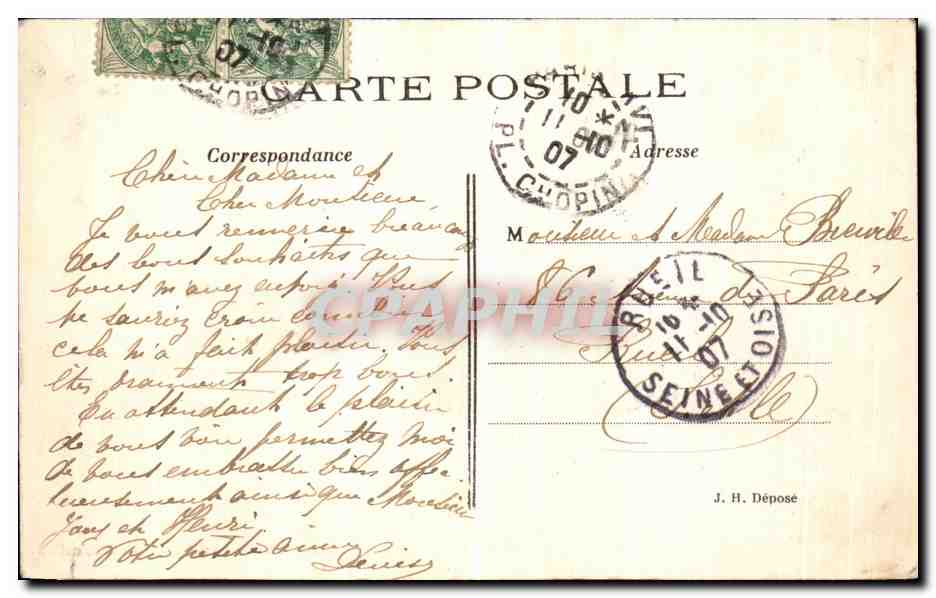 CARTE POSTALE
Correspondance
Adresse
Chère Madame et
Cher Monsieur,
Je vous remercie beaucoup
des bons souhaits que
vous m'avez envoyés. Vous
ne sauriez croire combien
cela m'a fait plaisir. Vous
êtes vraiment trop bons.
En attendant le plaisir
de vous voir permettez moi
de vous embrasser bien affec
tueusement ainsi que Monsieur
et Henri
Votre petite amie
Denise
Monsieur et Madame
86 Avenue de Paris
Rueil
S. et Oise
J. H. Déposé
10 *
11 - 10
07
PL. CHOPIN
RUEIL
16 *
11 - 10
07
SEINE ET OISE
10
07
PL. CHOPIN
CPAPHIL